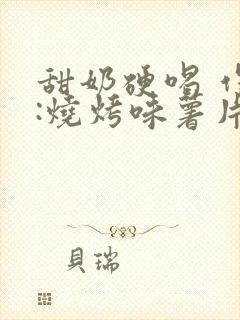 甜奶硬唱
:燒烤味薯片
貝瑞